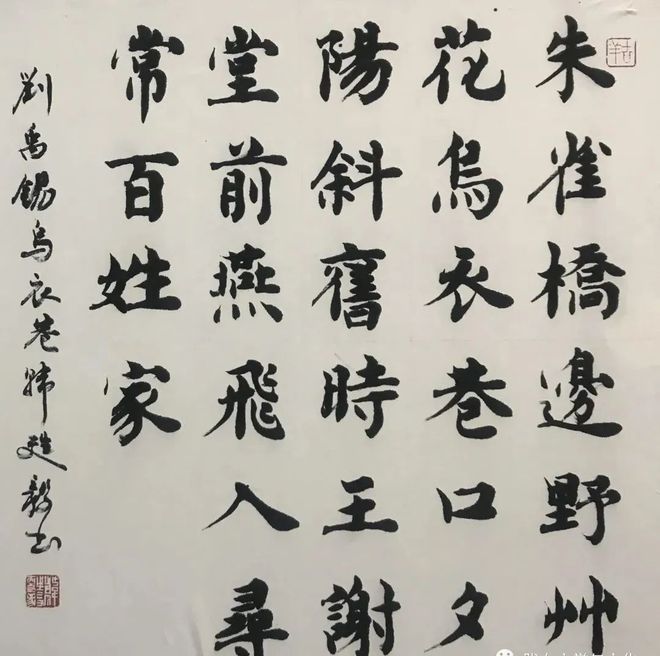 朱雀橋邊野艸
花烏衣巷口夕
陽斜舊時王謝
堂前燕飛入尋
常百姓家
劉禹錫烏衣巷韩廷毅書